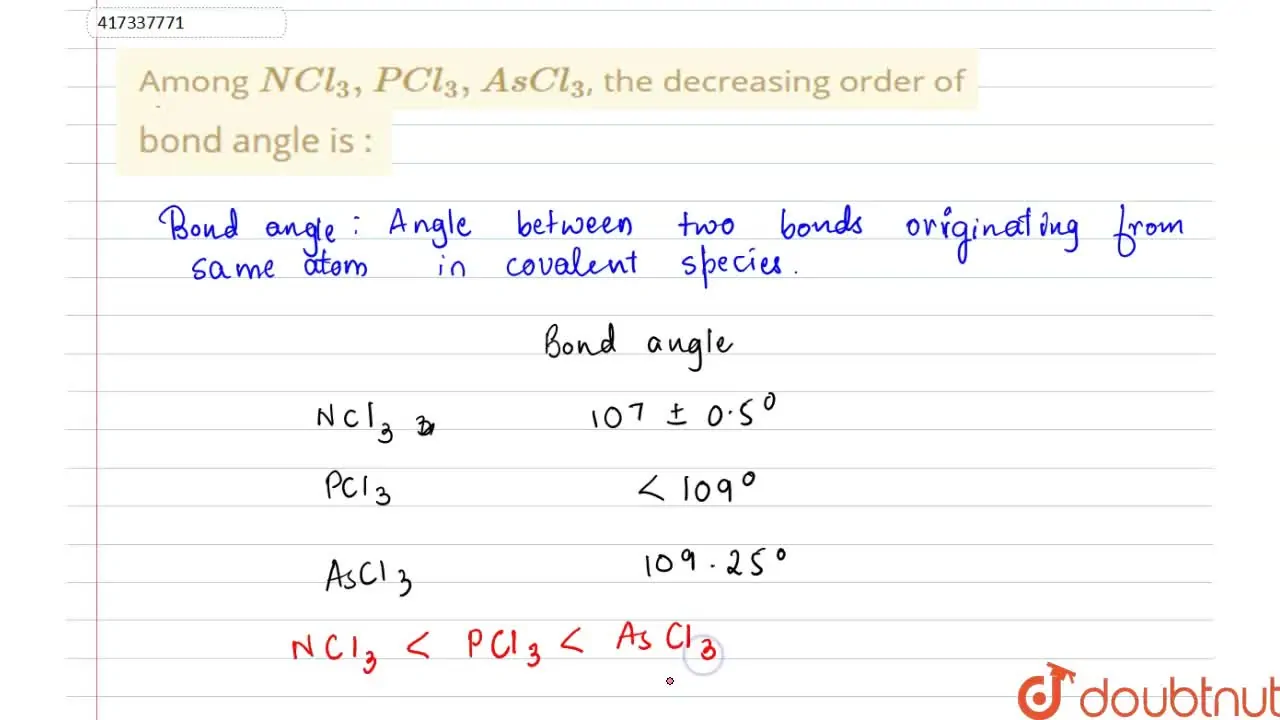 417337771
Among NCl₃, PCl₃, AsCl₃, the decreasing order of
bond angle is :
Bond angle : Angle between two bonds originating from
same atom in covalent species.
Bond angle
NCl₃ 107 ± 0.5°
PCl₃ < 109°
AsCl₃ 109.25°
NCl₃ < PCl₃ < AsCl₃
doubtnut